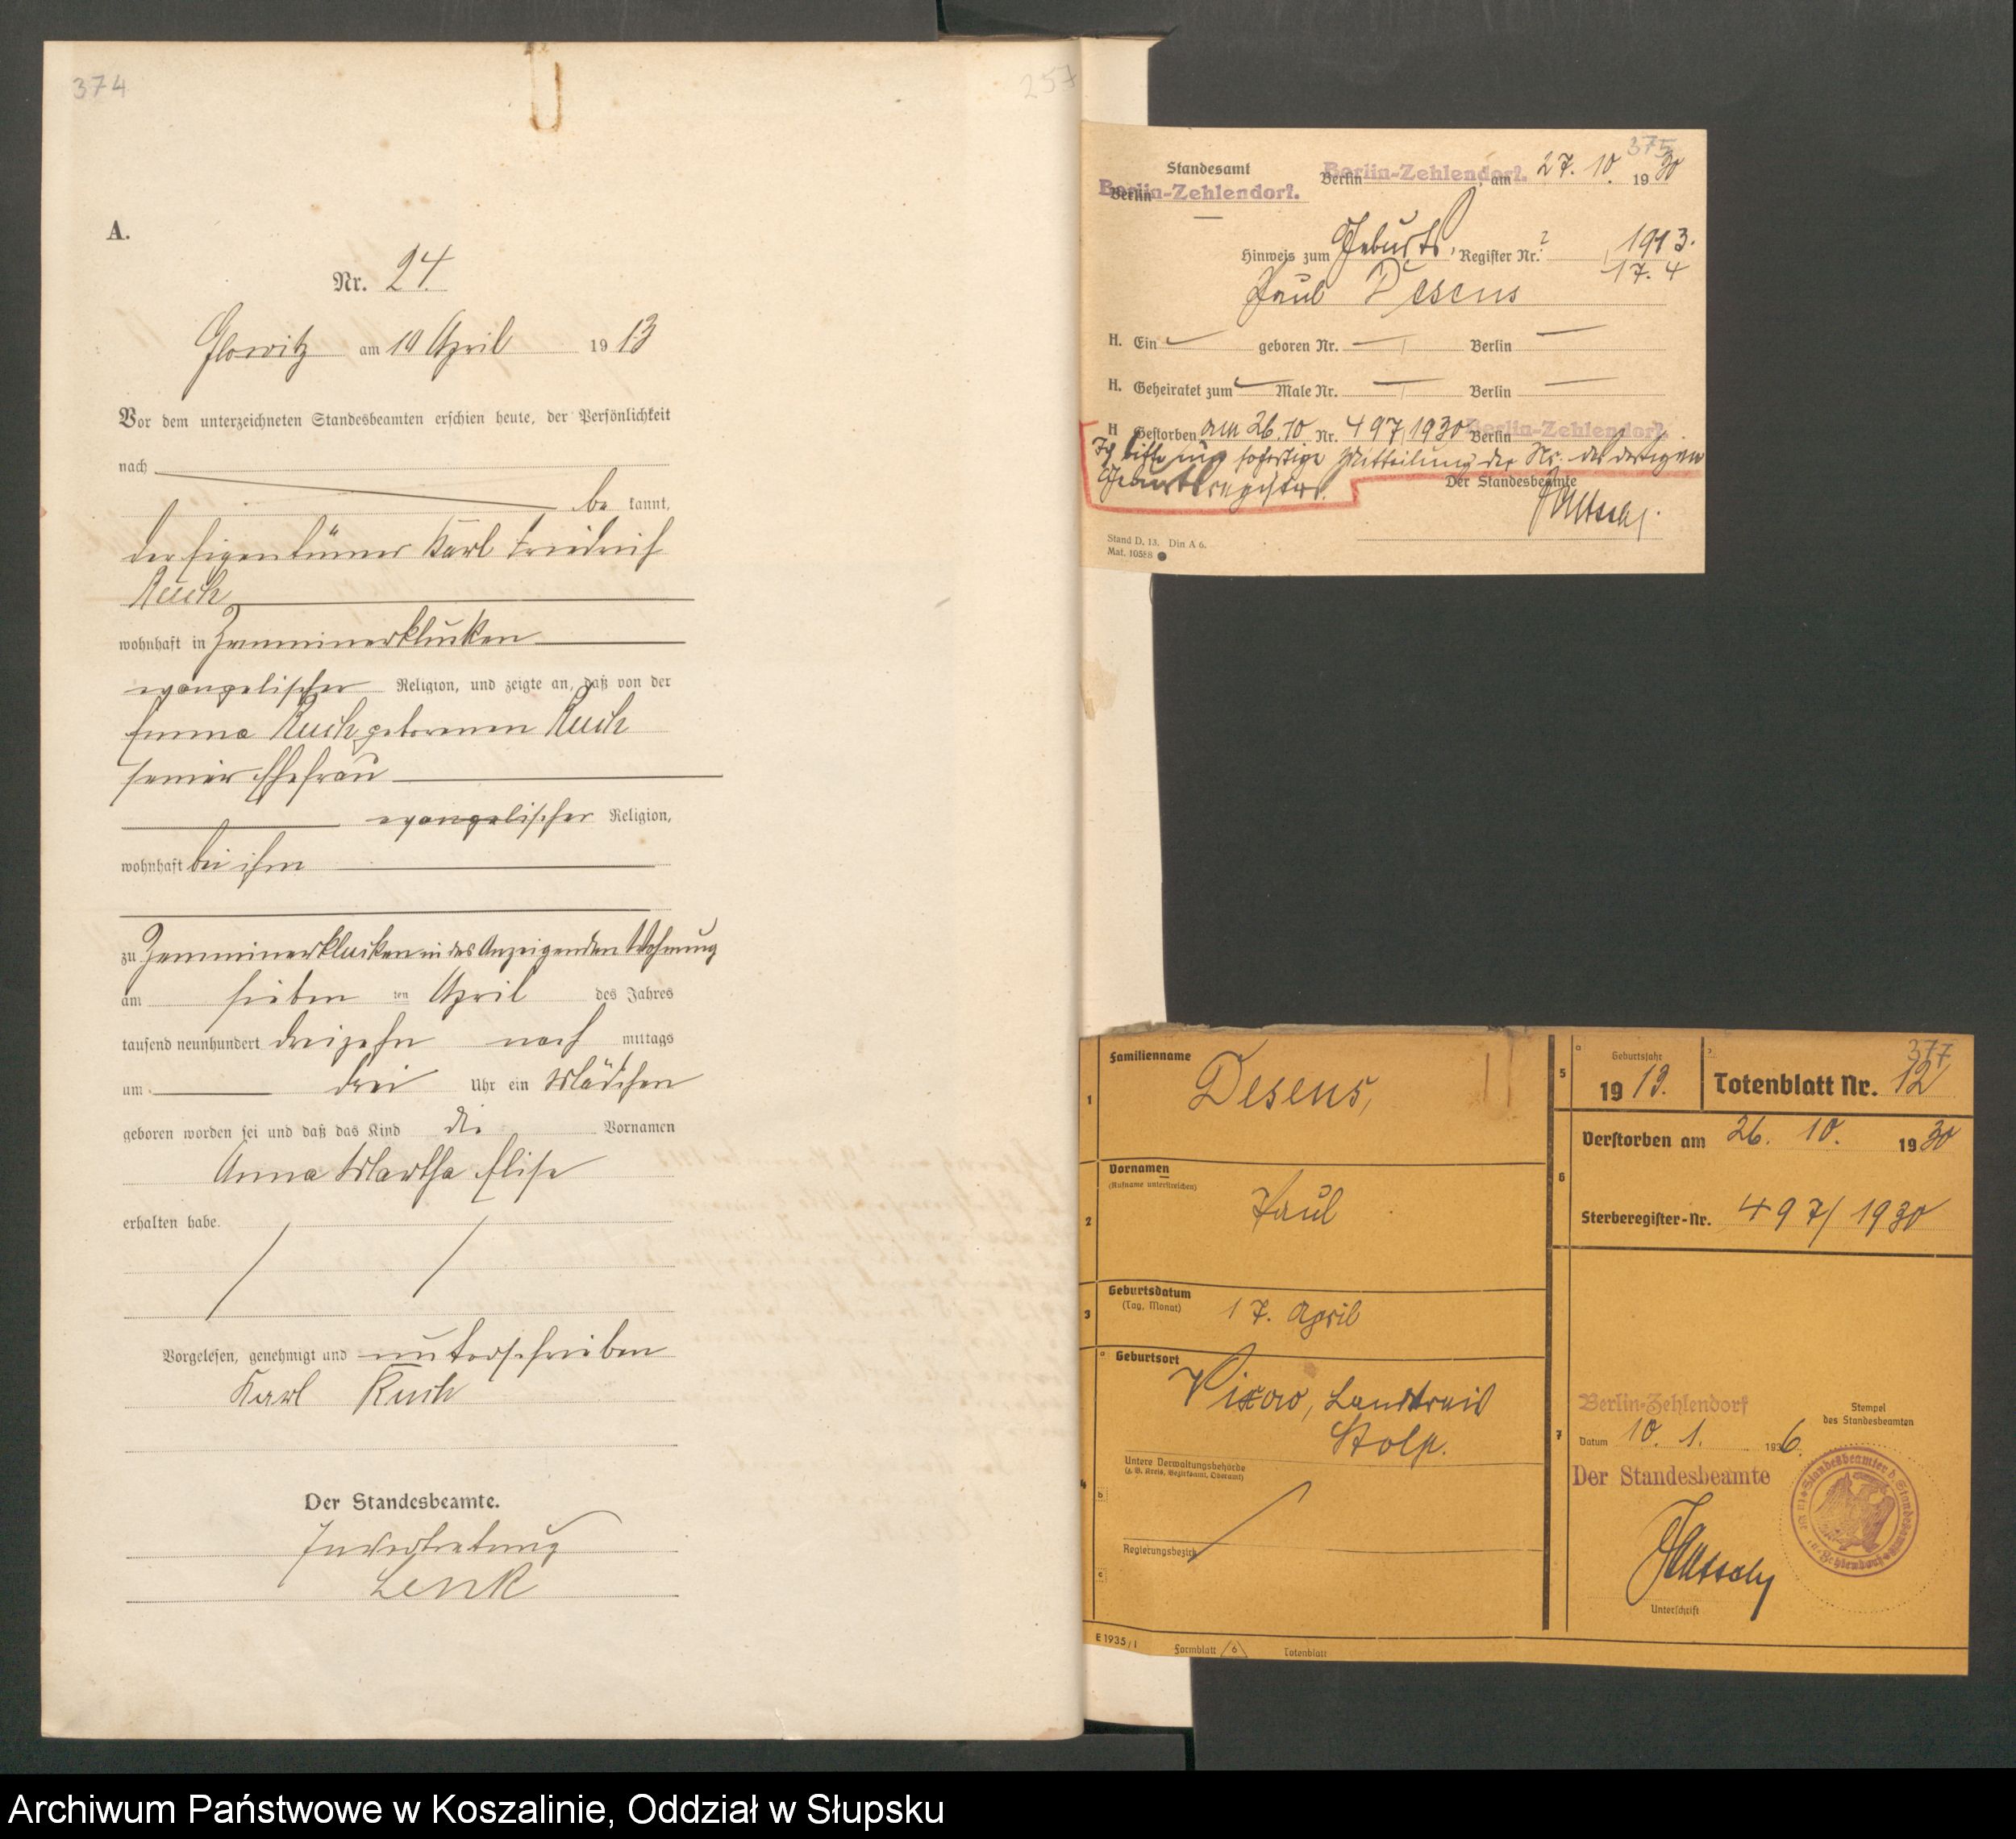 374
257
A.
Nr. 24.
Glowitz am 10 April 1913
Vor dem unterzeichneten Standesbeamten erschien heute, der Persönlichkeit
nach
be kannt,
der Eigentümer Karl Friedrich
Ruch
wohnhaft in Zemminerklucken
evangelischer Religion, und zeigte an, daß von der
Emma Ruch geborenen Ruch
seiner Ehefrau
evangelischer Religion,
wohnhaft bei ihm
zu Zemminerklucken in des Anzeigenden Wohnung
am sieben ten April des Jahres
tausend neunhundert dreizehn nach mittags
um drei Uhr ein Mädchen
geboren worden sei und daß das Kind die Vornamen
Anna Martha Elise
erhalten habe.
Vorgelesen, genehmigt und unterschrieben
Karl Ruch
Der Standesbeamte.
In Vertretung
Lenk
375
Standesamt
Berlin-Zehlendorf.
Berlin
Berlin-Zehlendorf. am 27. 10. 1930
Berlin
Hinweis zum Geburts, Register Nr. ? 1913.
17. 4
Paul Desens
H. Ein geboren Nr. Berlin
H. Geheiratet zum Male Nr. Berlin
H Gestorben am 26. 10 Nr. 497/1930 Berlin
Berlin-Zehlendorf.
Ich bitte um sofortige Mitteilung der Nr. des dortigen
Geburtsregisters.
Der Standesbeamte
Stand D. 13. Din A 6.
Mat. 10588
377
Familienname
1
Desens,
Vornamen
(Rufname unterstreichen)
2
Paul
Geburtsdatum
(Tag, Monat)
3
17. April
Geburtsort
a
Vixow, Landkreis
Stolp.
4
Untere Verwaltungsbehörde
(z. B. Kreis, Bezirksamt, Oberamt)
b
Regierungsbezirk
c
E 1935/I Formblatt 6 Totenblatt
5
a
Geburtsjahr
1913.
b
Totenblatt Nr. 12
6
Verstorben am 26. 10. 1930
Sterberegister-Nr. 497/1930
7
Berlin-Zehlendorf
Stempel
des Standesbeamten
Datum 10. 1. 1936.
Der Standesbeamte
Unterschrift
Archiwum Państwowe w Koszalinie, Oddział w Słupsku